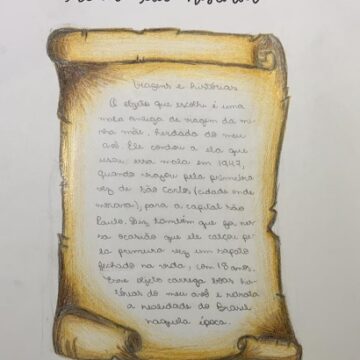 Viagens e histórias
O objeto que escolhi é uma
mala antiga de viagem da mi
nha mãe, herdada do meu
avô. Ele contou a ela que
usou essa mala em 1947,
quando viajou pela primeira
vez de São Carlos (cidade onde
morava), para a capital São
Paulo. Diz também que foi nes
sa ocasião que ele calçou pe
la primeira vez um sapato
fechado na vida, com 18 anos.
Esse objeto carrega boas his
tórias do meu avô e retrata
a realidade do Brasil
naquela época.